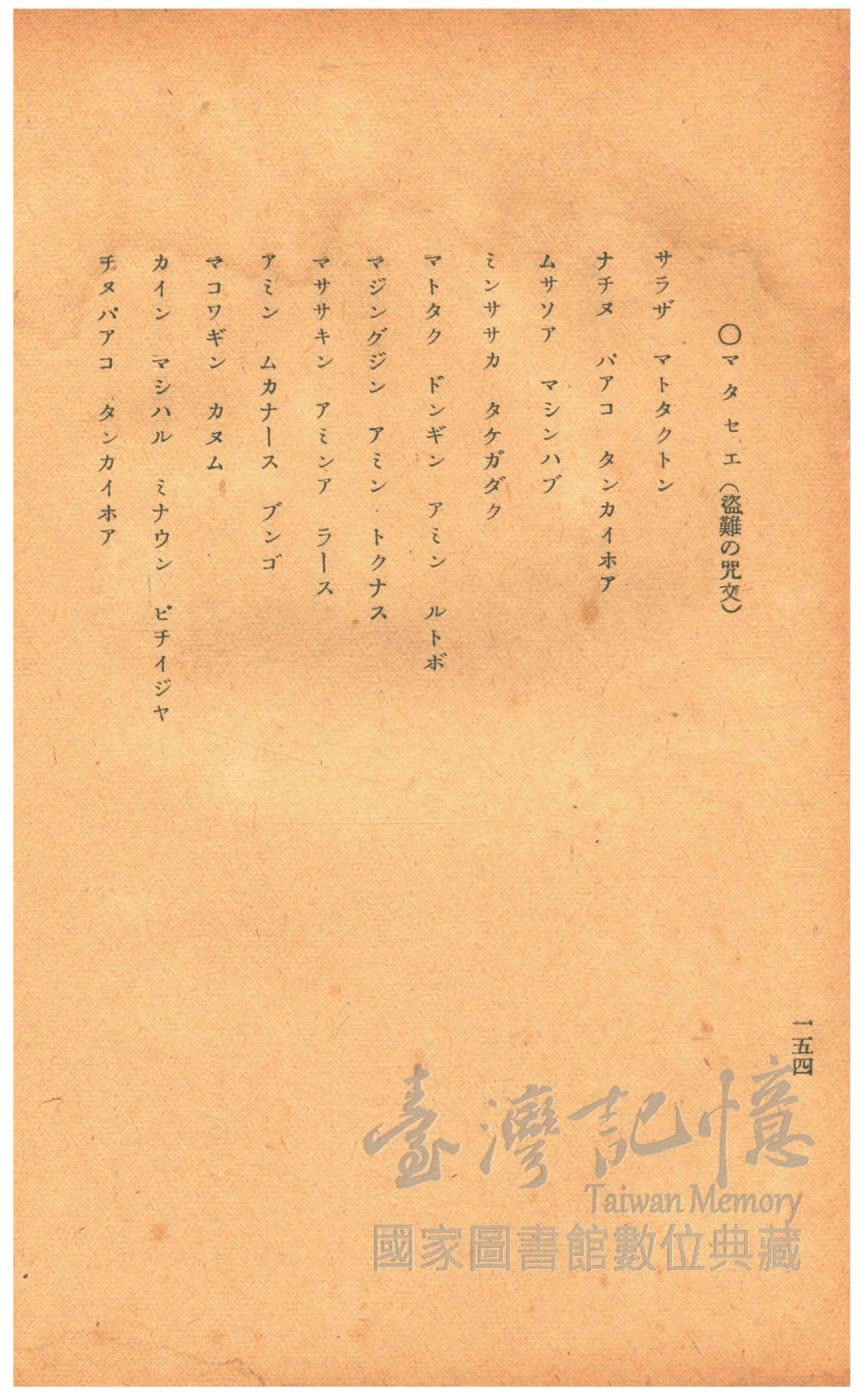 〇マタセエ(盜難の咒文)
サラザ マトタクトン
ナチヌ パアコ タンカイホア
ムサソア マシンハブ
ミンササカ タケガダク
マトタク ドンギン アミン ルトボ
マジングジン アミン トクナス
マササキン アミンア ラース
アミン ムカナース ブンゴ
マコワギン カヌム
カイン マシハル ミナウン ピチイジヤ
チヌパアコ タンカイホア
一五四
臺灣記憶
Taiwan Memory
國家圖書館數位典藏